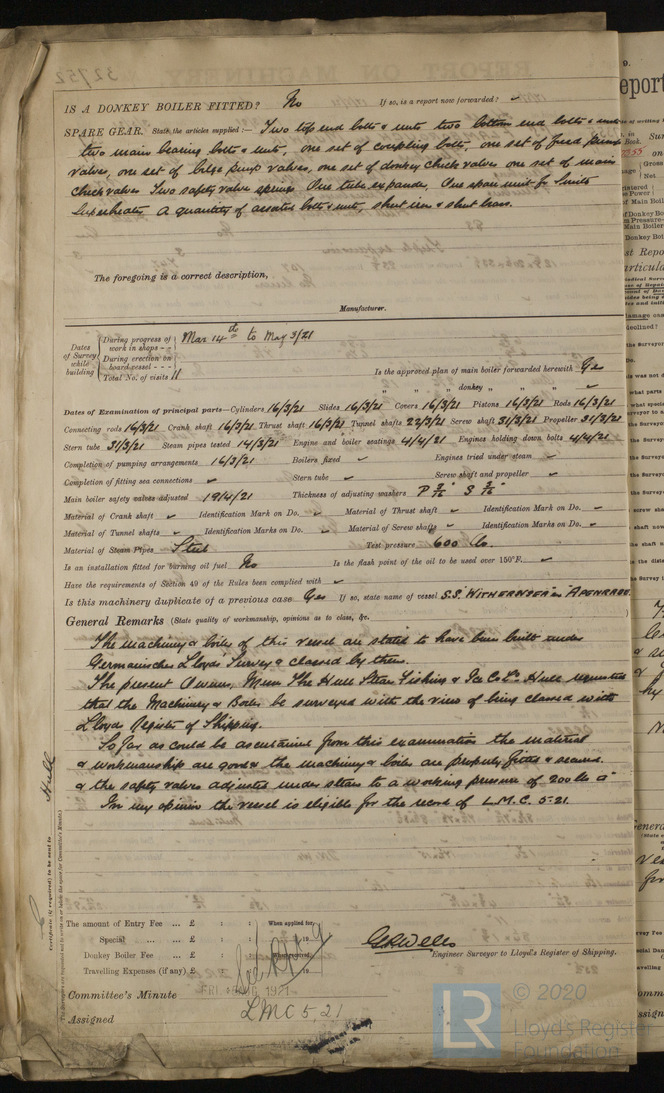 IS A DONKEY BOILER FITTED? No If so, is a report now forwarded? ✓
SPARE GEAR. State the articles supplied:— Two top end bolts & nuts two bottom end bolts & nuts
two main bearing bolts & nuts, one set of coupling bolts, one set of feed pump
valves, one set of bilge pump valves, one set of donkey check valves one set of main
check valves Two safety valve springs One tube expander, One spare unit for Smits
Superheater A quantity of assorted bolts & nuts, sheet iron &
The foregoing is a correct description,
Manufacturer.
Dates of Survey while building
During progress of work in shops - - Mar 14th to May 3/21
During erection on board vessel - - -
Total No. of visits 11
Is the approved plan of main boiler forwarded herewith Yes
" " " donkey " " " ✓
Dates of Examination of principal parts—Cylinders 16/3/21 Slides 16/3/21 Covers 16/3/21 Pistons 16/3/21 Rods 16/3/21
Connecting rods 16/3/21 Crank shaft 16/3/21 Thrust shaft 16/3/21 Tunnel shafts 22/3/21 Screw shaft 31/3/21 Propeller 31/3/21
Stern tube 31/3/21 Steam pipes tested 14/3/21 Engine and boiler seatings 4/4/21 Engines holding down bolts 4/4/21
Completion of pumping arrangements 16/3/21 Boilers fixed ✓ Engines tried under steam ✓
Completion of fitting sea connections ✓ Stern tube ✓ Screw shaft and propeller ✓
Main boiler safety valves adjusted 19/4/21 Thickness of adjusting washers P S
Material of Crank shaft ✓ Identification Mark on Do. ✓ Material of Thrust shaft ✓ Identification Mark on Do. ✓
Material of Tunnel shafts ✓ Identification Marks on Do. ✓ Material of Screw shafts ✓ Identification Marks on Do. ✓
Material of Steam Pipes Steel Test pressure 600 lbs.
Is an installation fitted for burning oil fuel No Is the flash point of the oil to be used over 150°F. ✓
Have the requirements of Section 49 of the Rules been complied with ✓
Is this machinery duplicate of a previous case Yes If so, state name of vessel S.S. "WITHERNSEA" ex "APENRADE"
General Remarks (State quality of workmanship, opinions as to class, &c.
The machinery & boiler of this vessel are stated to have been built under
Germanischer Lloyds Survey & classed by them.
The present Owners, Messrs The Hull Steam Fishing & Ice Co Ld Hull requested
that the Machinery & Boiler be surveyed with the view of being classed with
Lloyds Register of Shipping.
So far as could be ascertained from this examination the material
& workmanship are good & the machinery & boiler are properly fitted & secured.
& the safety valves adjusted under steam to a working pressure of 200 lbs □"
In my opinion the vessel is eligible for the record of L.M.C. 5-21.
Certificate (if required) to be sent to Hull
The amount of Entry Fee ... £ : : When applied for,
Special ... ... £ : :
Donkey Boiler Fee ... £ : :
Travelling Expenses (if any) £ : :
Engineer Surveyor to Lloyd's Register of Shipping.
Committee's Minute FRI. 1921
Assigned LMC 5.21
© 2020
LR
Lloyd's Register
Foundation